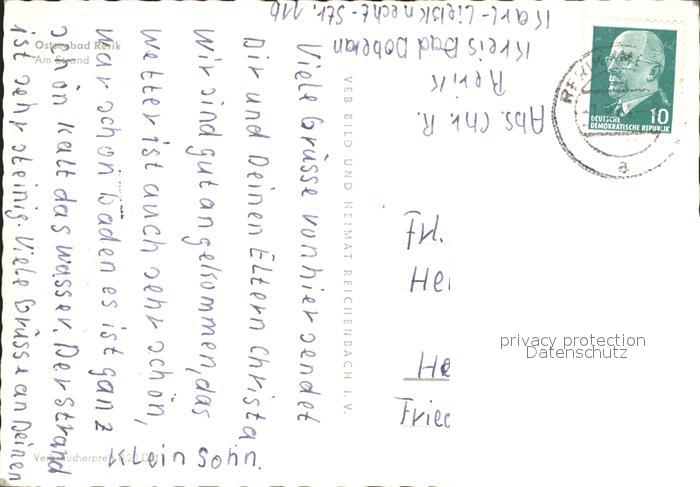 Ostseebad Rerik
Am Strand
Viele Grüsse von hier sendet
Dir und Deinen Eltern Christa
Wir sind gut angekommen, das
Wetter ist auch sehr schön,
war schon baden es ist ganz
schön kalt das Wasser. Der Strand
ist sehr steinig. Viele Grüsse an Deinen
VEB BILD UND HEIMAT REICHENBACH I. V.
Abs. Chr. R.
Rerik
Kreis Bad Doberan
Karl-Liebknecht-Str. 11b
DEUTSCHE
DEMOKRATISCHE REPUBLIK
10
a
Frl.
Hei
He
Fried
privacy protection
Datenschutz